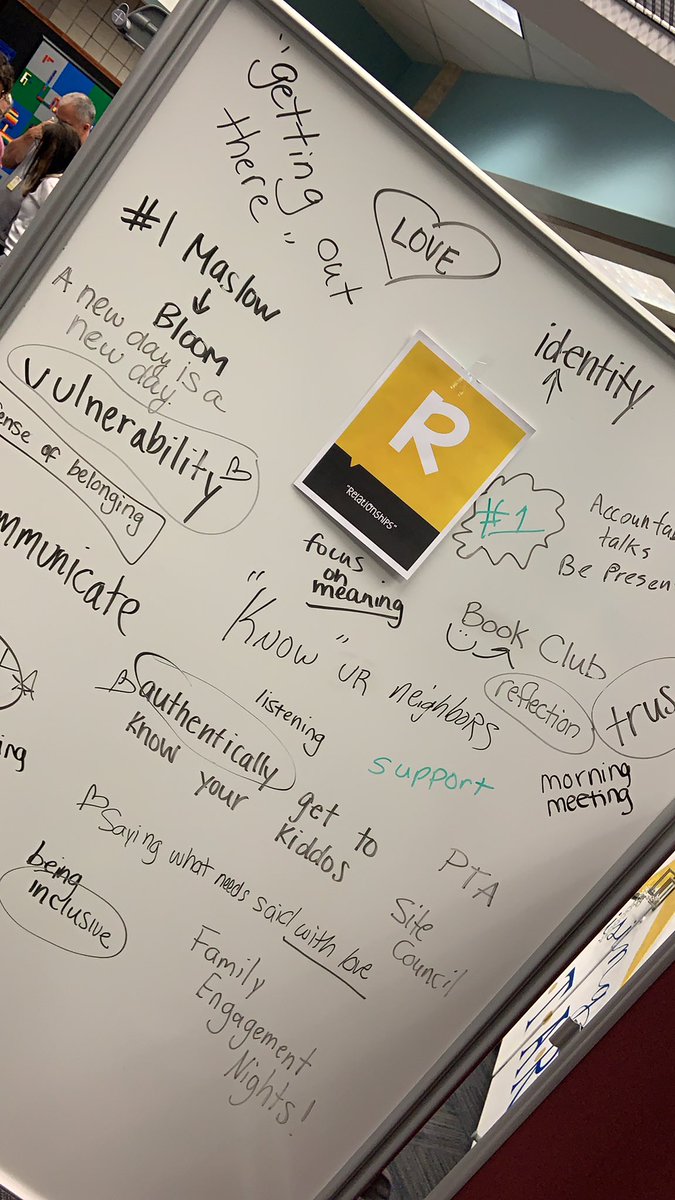 "getting out
there"
LOVE
#1 Maslow
↓
Bloom
identity
A new day is a
new day
vulnerability
sense of belonging
R
"Relationships"
#1
talks
Be Present
focus
on
meaning
"Know" UR neighbors
Book Club
reflection
morning
meeting
listening
authentically get to
Know your Kiddos
support
Saying what needs said with love
PTA
Site
Council
being
inclusive
Family
Engagement
Nights!